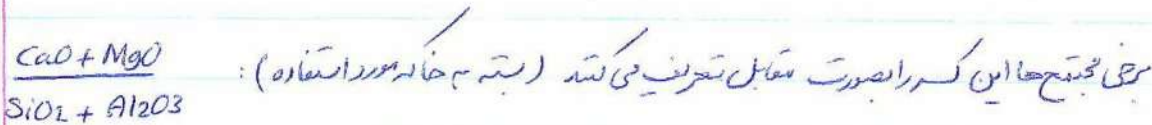 برخی مجتمع‌ها این کسر را بصورت مقابل تعریف می‌کنند (بسته به خاک مورد استفاده) :
CaO + MgO
SiO2 + Al2O3